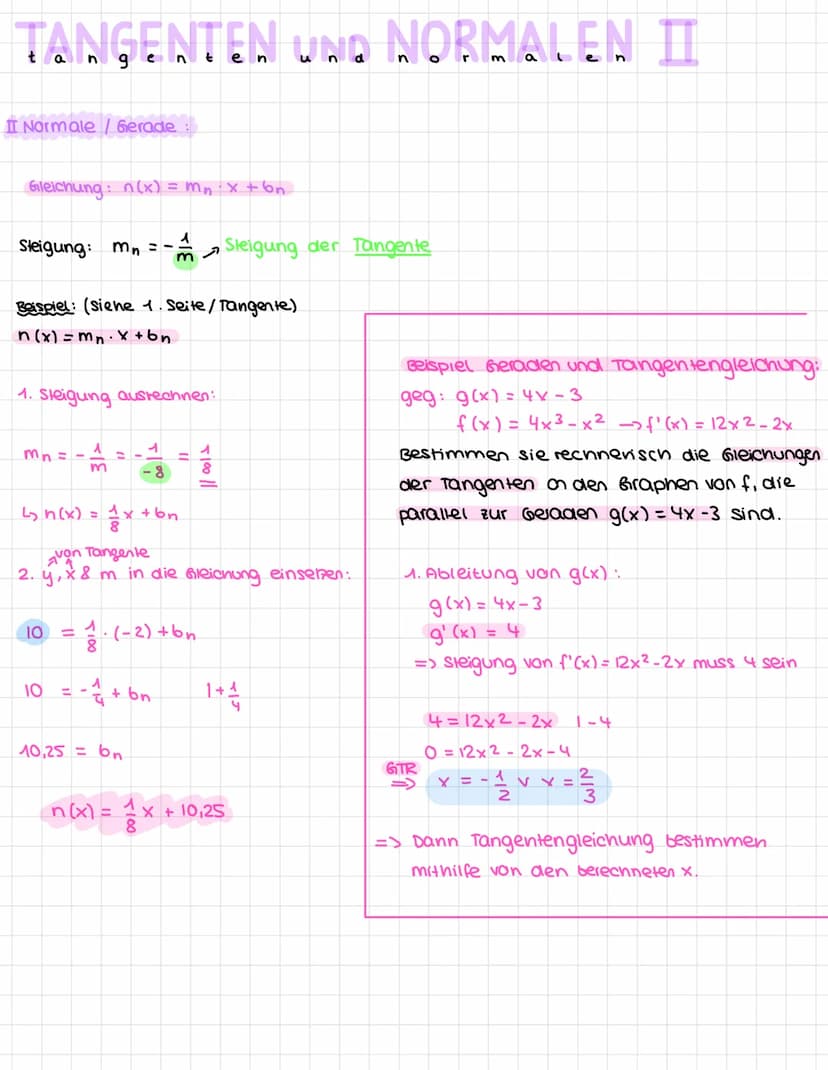 TANGENTEN und NORMALEN II
tangenten und normalen
II Normale / Gerade :
Gleichung: n(x) = mn · x + bn
Steigung: mn = - 1/m → Steigung der Tangente
Beispiel: (siehe 1. Seite / Tangente)
n(x) = mn · x + bn
1. Steigung ausrechnen:
mn = - 1/m = - 1/-8 = 1/8
↳ n(x) = 1/8 x + bn
von Tangente
2. y, x & m in die Gleichung einsetzen:
10 = 1/8 · (-2) + bn
10 = - 1/4 + bn | + 1/4
10,25 = bn
n(x) = 1/8 x + 10,25
Beispiel Geraden und Tangentengleichung:
geg: g(x) = 4x - 3
f(x) = 4x³ - x² → f'(x) = 12x2 - 2x
Bestimmen sie rechnerisch die Gleichungen
der Tangenten an den Graphen von f, die
parallel zur Geraden g(x) = 4x - 3 sind.
1. Ableitung von g(x) :
g(x) = 4x - 3
g'(x) = 4
=> Steigung von f'(x) = 12x² - 2x muss 4 sein
4 = 12x2 - 2x | - 4
0 = 12x2 - 2x - 4
GTR
=> x = - 1/2 v x = 2/3
=> Dann Tangentengleichung bestimmen
mithilfe von den berechneten x.